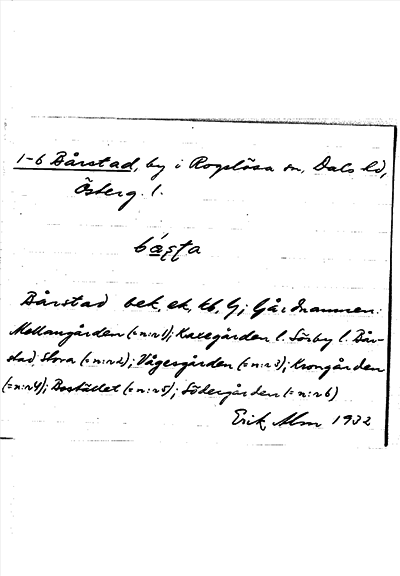 1-6 Bårstad, by i Rogslösa sn, Dals hd,
Österg. l.
bås̥ta
Bårstad bek, ek, kb, lj; Gårdnamnen:
Mellangården (= n:r 1); Kaxegården l. Sörby l. Bår-
stad, Stora (= n:r 2); Vågesgården (= n:r 3); Krongården
(= n:r 4); Bostället (= n:r 5); Södergården (= n:r 6)
Erik Alm 1932